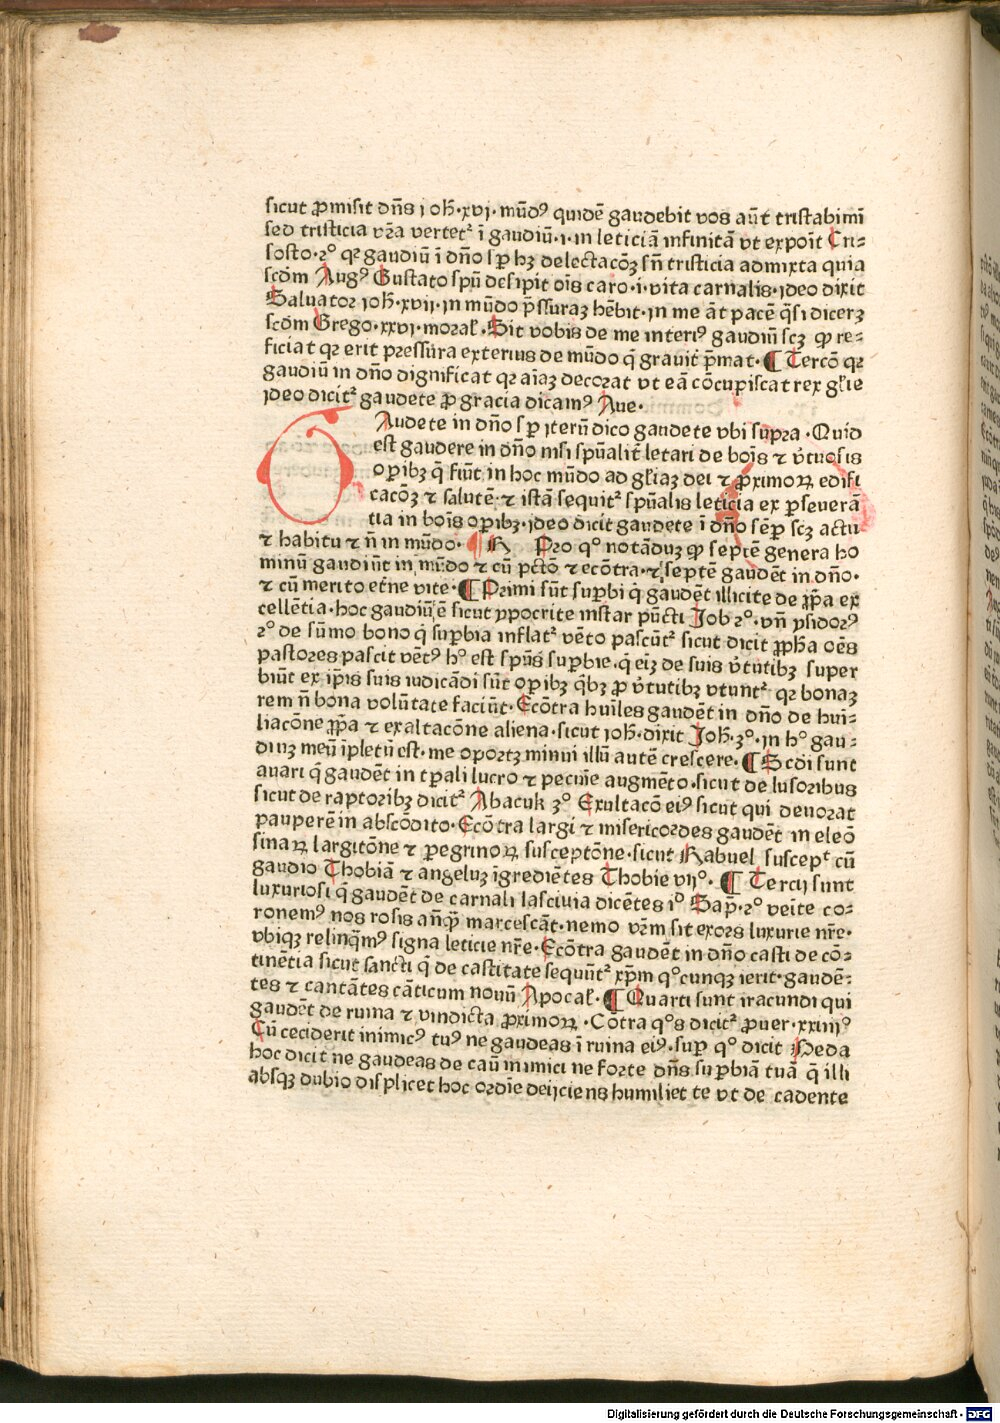 sicut ꝓmisit dn̄s ioh̄·xvj·mūdꝰ quidē gaudebit vos aūt tristabimī
sed tristicia vr̄a vertetᷣ ī gaudiū·i·in leticiā infinitā vt expoīt Cri⸗
sosto·2°·qꝛ gaudiū ī dn̄o ſꝑ hꝫ delectacōꝫ sn̄ tristicia admixta quia
scḋm Augꝰ Gustato spū desipit oīs caro·i·vita carnalis·ideo dixit
Saluator ioh̄·xvij·in mūdo p̄ssuraꝫ hēbit·in me āt pacē q̄si dicerꝫ
scḋm Grego·xxvj·moraƚ·Sit vobis de me interiꝰ gaudiū scꝫ qꝓ re⸗
ficiat qꝛ erit pressura exterius de mūdo q̄ grauit̄ p̄mat·¶ Tercō qꝛ
gaudiū in dn̄o dignificat qꝛ aīaꝫ decorat vt eā cōcupiscat rex gƚie
ideo dicitᷣ gaudete ꝓ gracia dicamꝰ Aue·
GAudete in dn̄o ſꝑ iterū dico gaudete vbi supra·Quid
est gaudere in dn̄o nisi spūalit̄ letari de boīs ⁊ v̄tuosis
oꝑibꝫ q̄ fiūt in hoc mūdo ad gƚiaꝫ dei ⁊ ꝓximoꝝ edifi
cacōꝫ ⁊ salutē·⁊ istā sequitᷣ spūalis leticia ex ꝑseuerā
tia in boīs oꝑibꝫ·ideo dicit gaudete ī dn̄o sēꝑ scꝫ actu
⁊ habitu ⁊ n̄ in mūdo·¶ R Pro q° notāduꝫ qꝓ septē genera ho
minū gaudiūt in mūdo ⁊ cū pctō ⁊ ecōtra·⁊ septē gaudēt in dn̄o·
⁊ cū merito et̄ne vite·¶ Primi sūt suꝑbi q̄ gaudēt illicite de ꝓp̄a ex
cellētia·hoc gaudiū ē sicut ypocrite instar pūcti Job 2°·vn̄ ysidorꝰ
2° de sūmo bono q̄ suꝑbia inflatᷣ vēto pascūtᷣ sicut dicit ꝓph̄a oēs
pastores pascit vētꝰ h° est spūs suꝑbie·q̄ eīꝫ de suis v̄tutibꝫ super
biūt ex ip̄is suis iudicādi sūt oꝑibꝫ q̄bꝫ ꝓ v̄tutibꝫ vtuntᷣ qꝛ bonaꝫ
rem n̄ bona volūtate faciūt·Ecōtra huīles gaudēt in dn̄o de hui⸗
liacōne ꝓp̄a ⁊ exaltacōne aliena·sicut ioh̄·dixit Joh̄·3°·in h° gau⸗
diuꝫ meū īpletū est·me oportꝫ minui illū autē crescere·¶ Scḋi sunt
auari q̄ gaudēt in tꝑali lucro ⁊ pecuīe augmēto·sicut de lusoribus
sicut de raptoribꝫ dicitᷣ Abacuk 3° Exultacō eiꝰ sicut qui deuorat
pauperē in abscōdito·Ecōtra largi ⁊ misericordes gaudēt in eleō
sinaꝝ largitōne ⁊ ꝑegrinoꝝ susceptōne·sicut Rabuel suscepᵗ cū
gaudio Thobiā ⁊ angeluꝫ īgrediētes Thobie vij°·¶ Tercij sunt
luxuriosi q̄ gaudēt de carnali lasciuia dicētes i° Sap̄·2° veīte co⸗
ronemꝰ nos rosis an̄q̄ꝫ marcescāt·nemo vr̄m sit exors luxurie nr̄e·
vbiqꝫ relinq̄mꝰ signa leticie nr̄e·Ecōtra gaudēt in dn̄o casti de cō⸗
tinētia sicut sancti q̄ de castitate sequūtᷣ xp̄m q°cunqꝫ ierit·gaudē⸗
tes ⁊ cantātes cāticum nouū Apocaƚ·¶ Quarti sunt iracundi qui
gaudēt de ruina ⁊ vindicta ꝓximoꝝ·Cōtra q°s dicitᷣ ꝓuer·xxiiij°
Cū ceciderit inimicꝰ tuꝰ ne gaudeas ī ruina eiꝰ·suꝑ q° dicit Beda
hoc dicit ne gaudeas de caū inimici ne forte dn̄s suꝑbiā tuā q̄ illi
absqꝫ dubio displicet hoc ordīe deijciens humiliet te vt de cadente
Digitalisierung gefördert durch die Deutsche Forschungsgemeinschaft - DFG